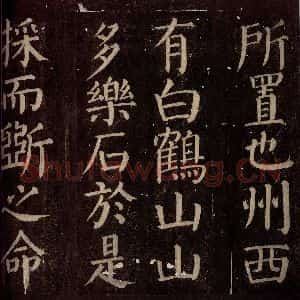 所置也州西
有白鶴山山
多樂石於是
採而斲之命
Shufawang.CN